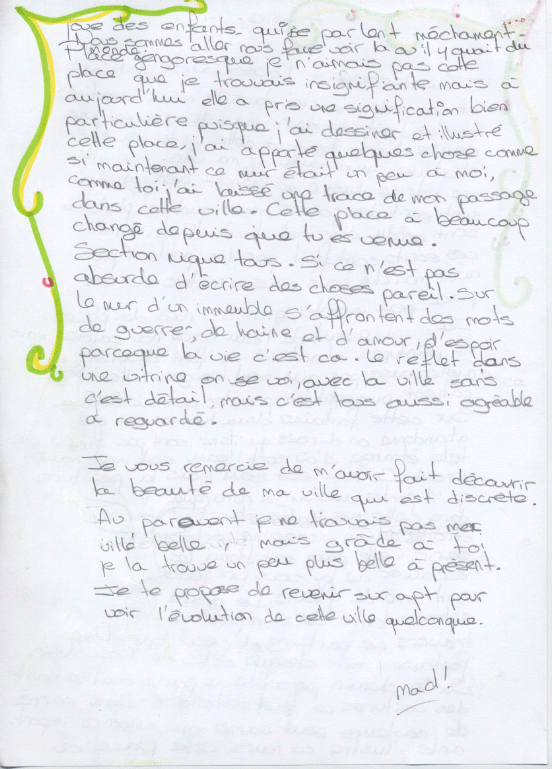 joue des enfants qui se parlent méchament.
Nous sommes aller nous faire voir là ou il y avait du
place gengoresque je n'aimais pas cette
place que je trouvais insignifiante mais à
aujourd'hui elle a pris une signification bien
particulière puisque j'ai dessiner et illustré
cette place, j'ai apporté quelques chose comme
si maintenant ce mur était un peu à moi,
comme toi j'ai laissé une trace de mon passage
dans cette ville. Cette place à beaucoup
changé depuis que tu es venue.
Section nique tous. Si ce n'est pas
absurde d'écrire des choses pareil. Sur
le mur d'un immeuble s'affrontent des mots
de guerre, de haine et d'amour, d'espoir
parceque la vie c'est ca. le reflet dans
une vitrine on se voi, avec la ville sans
c'est détail, mais c'est tous aussi agréable
à reguardé.
Je vous remercie de m'avoir fait découvrir
la beauté de ma ville qui est discrète.
Au paravent je ne trouvais pas ma
ville belle, mais grâde à toi
je la trouve un peu plus belle à présent.
Je te propose de revenir sur apt pour
voir l'évolution de cette ville quelconque.
Mad!